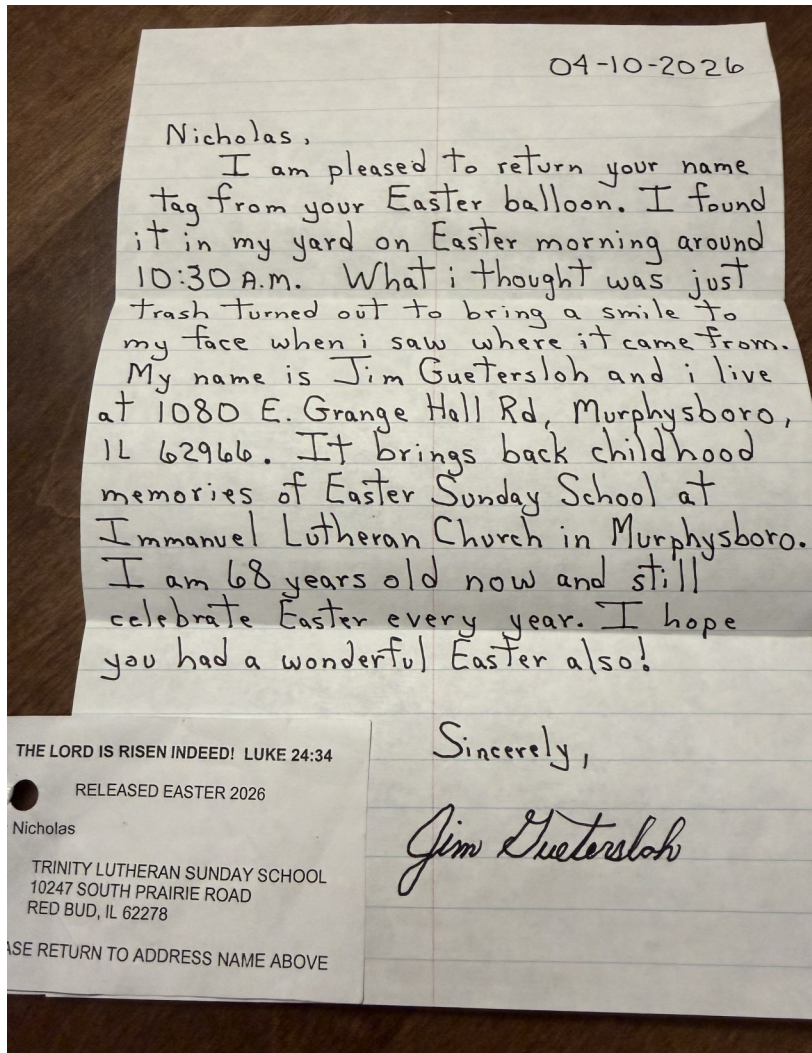 04-10-2026
Nicholas,
I am pleased to return your name
tag from your Easter balloon. I found
it in my yard on Easter morning around
10:30 A.M. What i thought was just
trash turned out to bring a smile to
my face when i saw where it came from.
My name is Jim Guetersloh and i live
at 1080 E. Grange Hall Rd, Murphysboro,
IL 62966. It brings back childhood
memories of Easter Sunday School at
Immanuel Lutheran Church in Murphysboro.
I am 68 years old now and still
celebrate Easter every year. I hope
you had a wonderful Easter also!
Sincerely,
Jim Guetersloh
THE LORD IS RISEN INDEED! LUKE 24:34
RELEASED EASTER 2026
Nicholas
TRINITY LUTHERAN SUNDAY SCHOOL
10247 SOUTH PRAIRIE ROAD
RED BUD, IL 62278
ASE RETURN TO ADDRESS NAME ABOVE